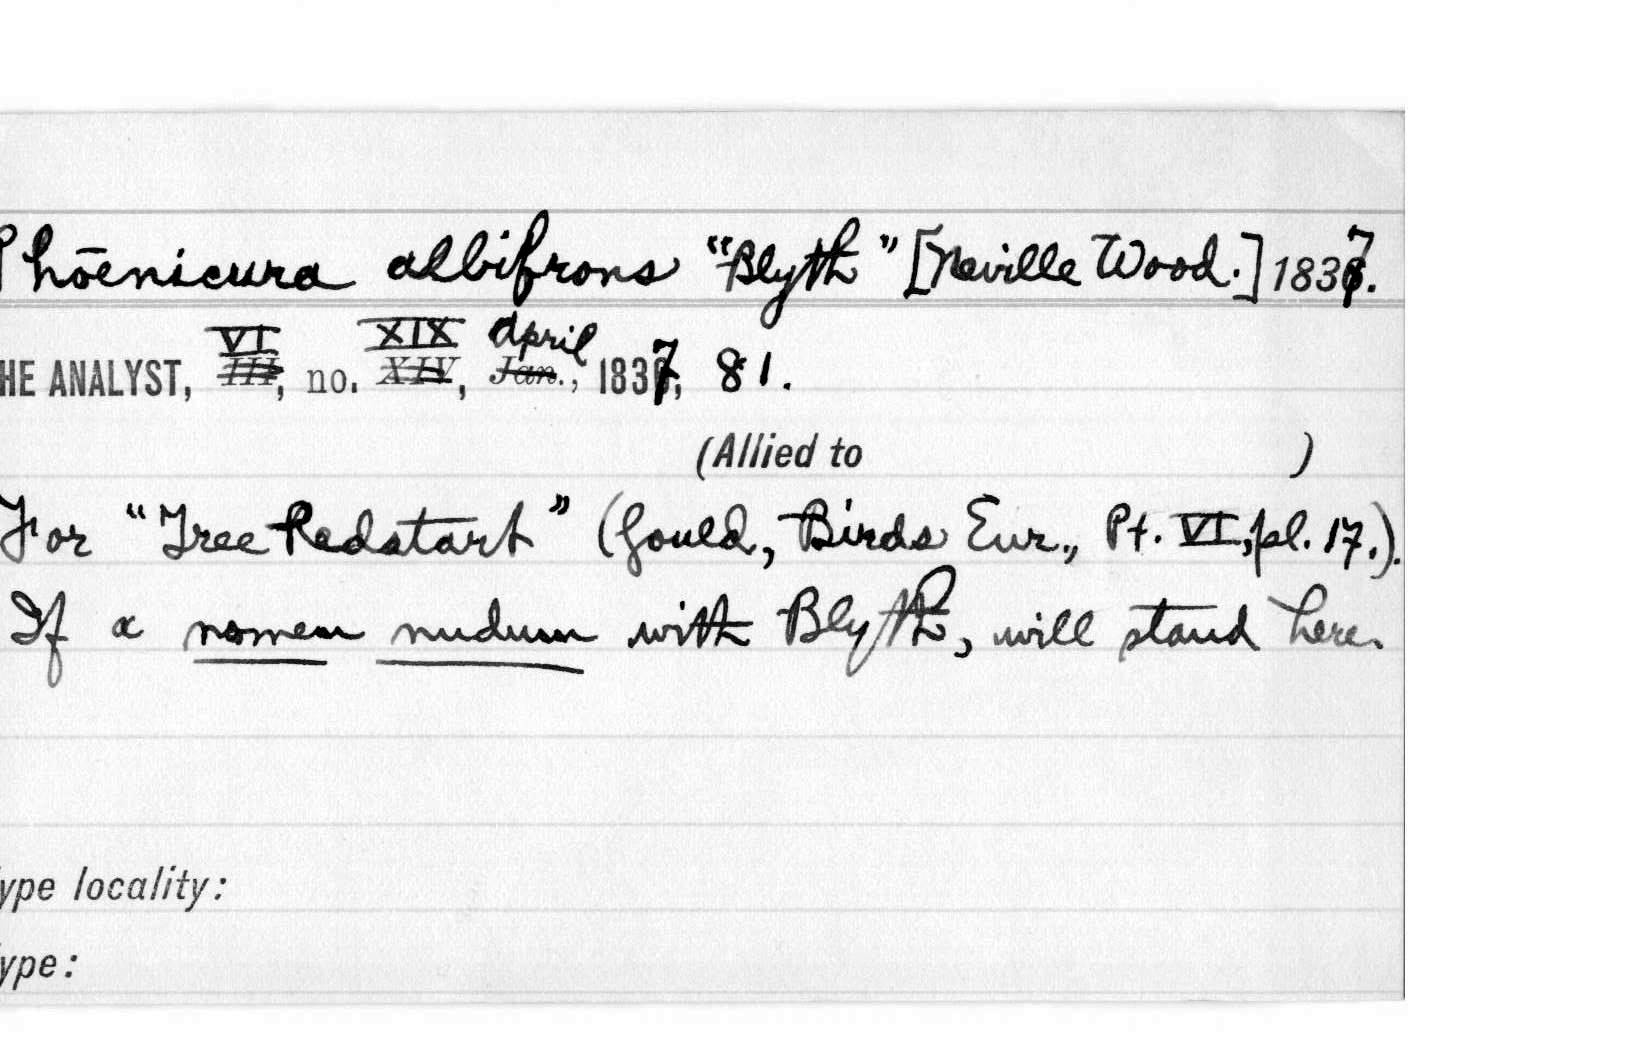 Phoenicura albifrons "Blyth" [Neville Wood.] 1837.
VI XIX April
HE ANALYST, III, no. XIV, Jan., 1837, 81.
(Allied to )
For "Tree Redstart" (Gould, Birds Eur., Pt. VI, pl. 17.).
If a nomen nudum with Blyth, will stand here.
ype locality:
ype: